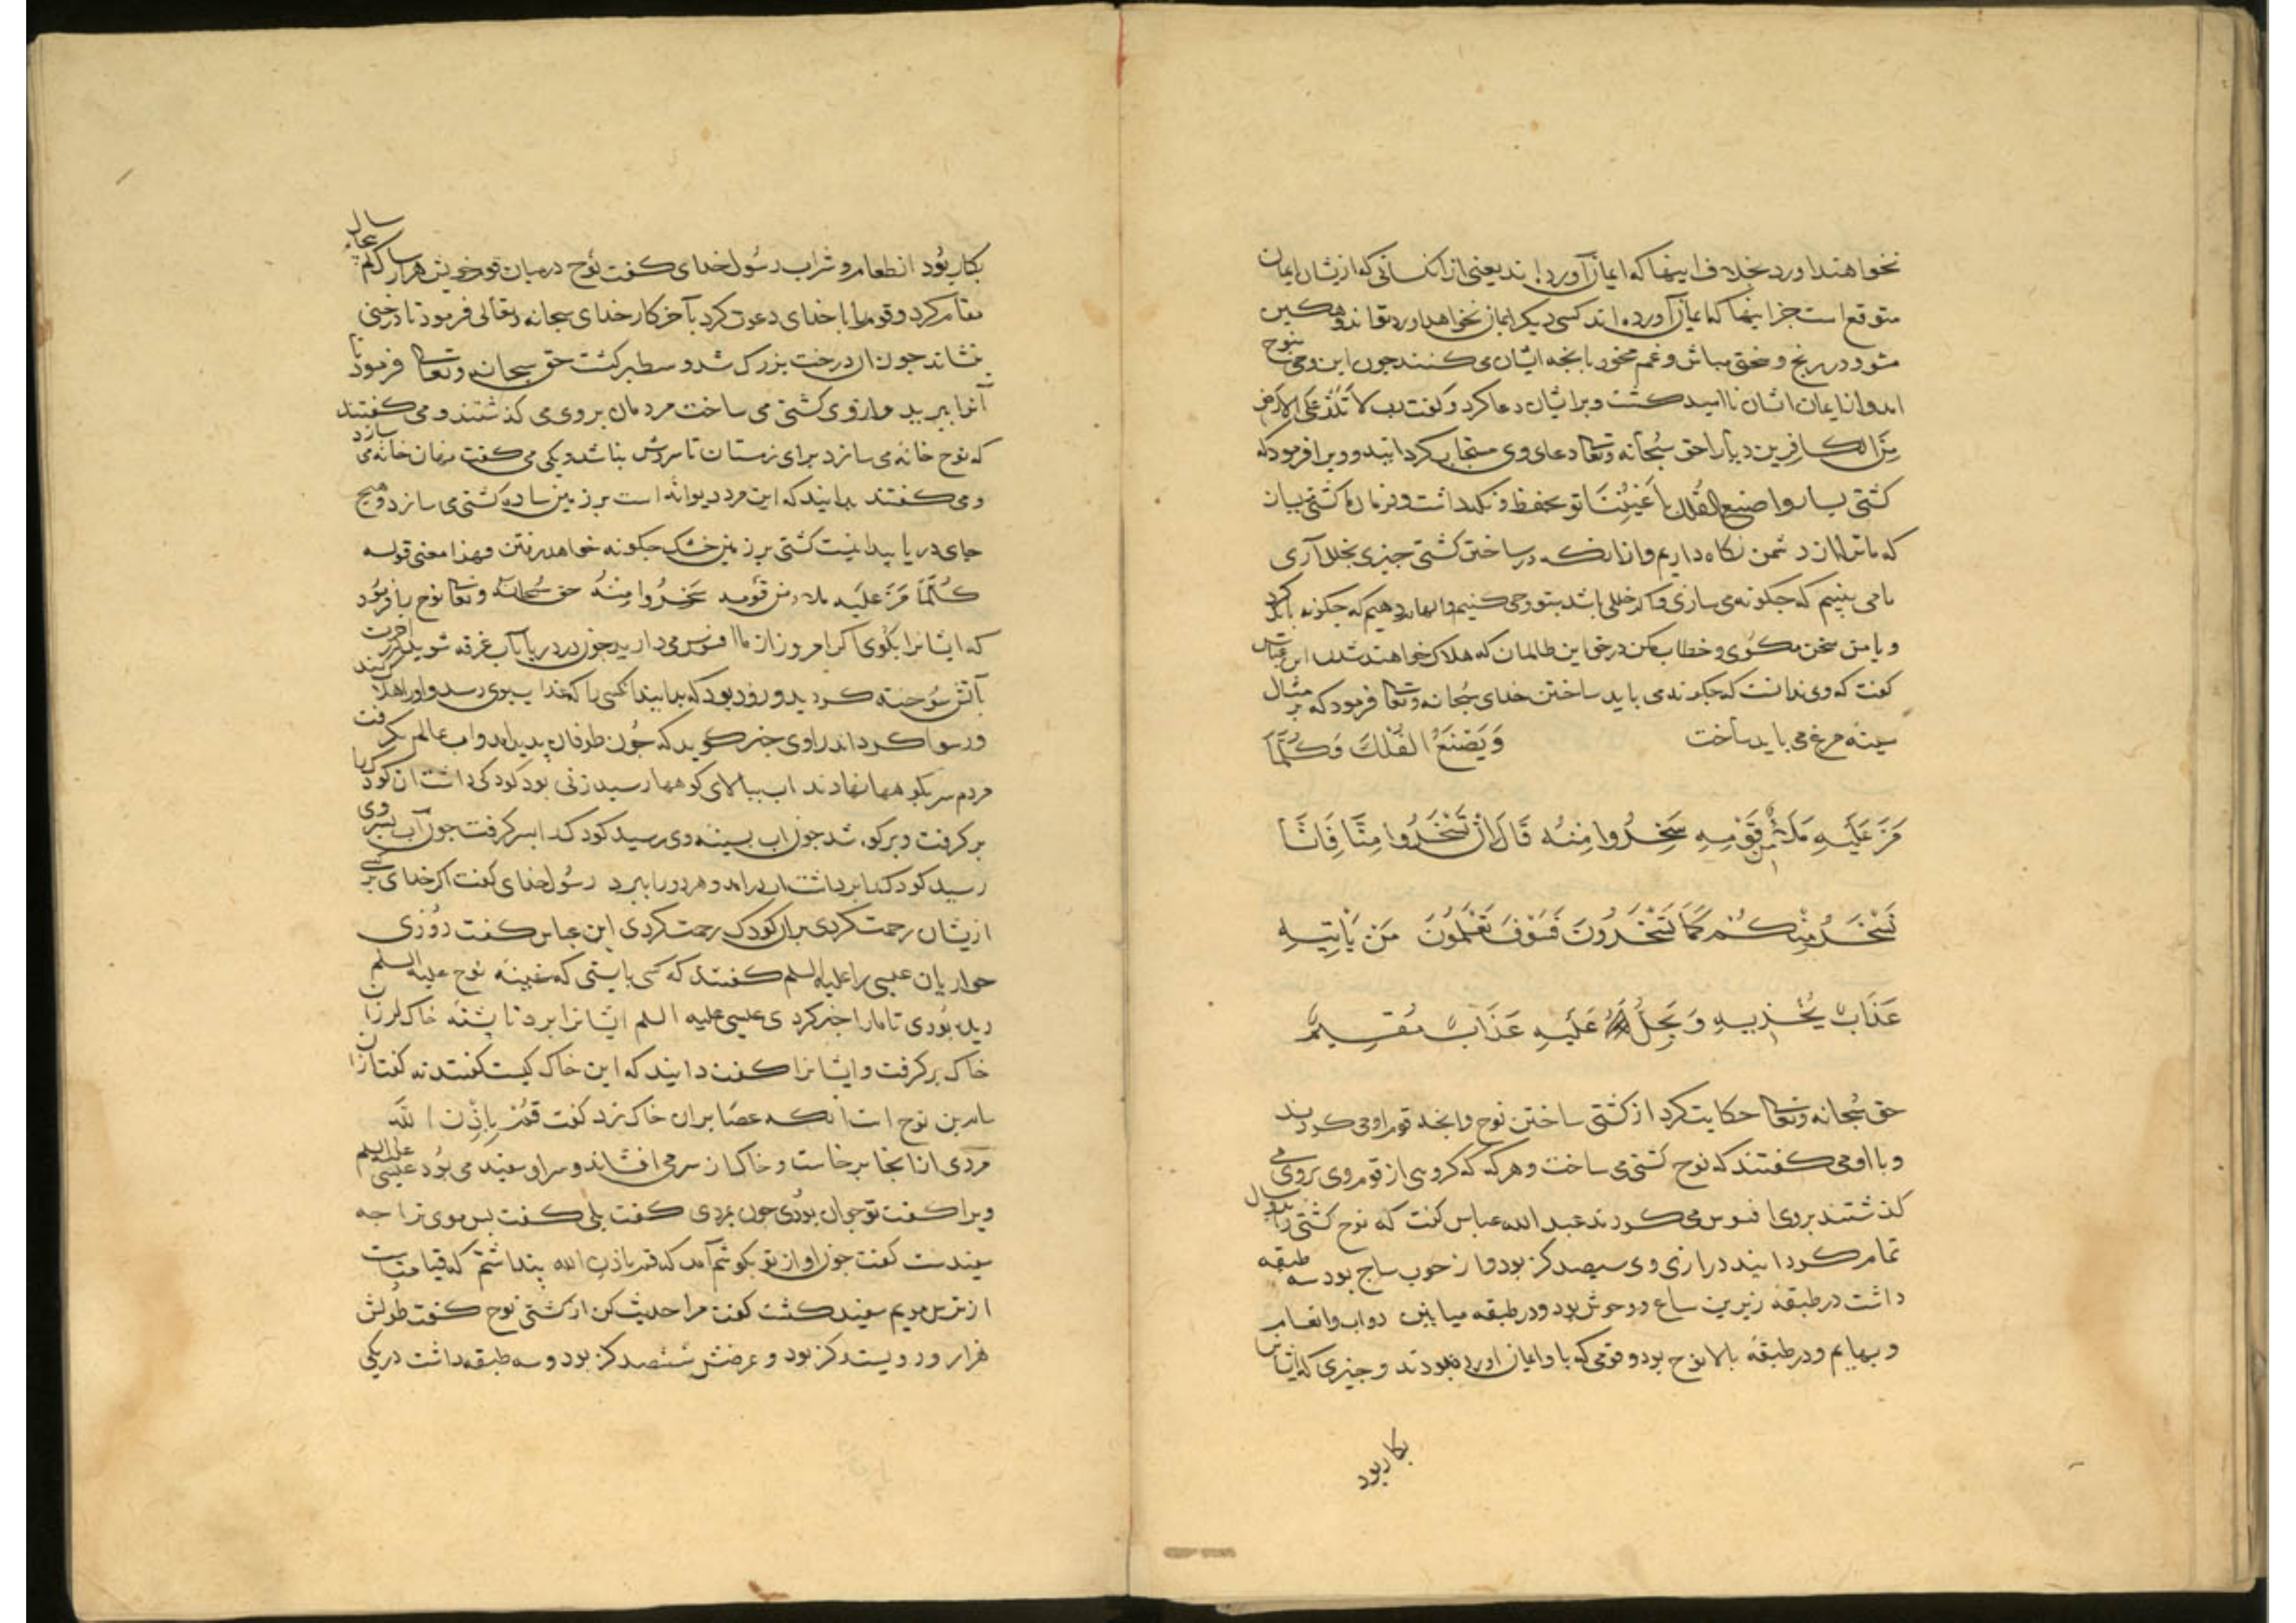 نخواهند اورد بخلاف اینها که ایمان آورده اند یعنی از انکسانی که ازیشان ایمان
متوقع است جز اینها که ایمان آورده اند کسی دیکر ایمان نخواهد اورد تو اندوهکین
مشو و در رنج و سختی مباش و غم مخور بانچه ایشان می کنند چون این وحی بنوح
امد و از ایمان ایشان ناامید کشت و بر ایشان دعا کرد و کفت رب لا تَذَرْ عَلَی الارض
مِنَ الکافرین دیارا حق سُبحانه وتعا دعای وی مستجاب کردانید و ویرا فرمود که
کشتی بساز واصنع الفُلک باَعْیُنِنَا تو بحفظ و نکهداشت و فرمان ما کشتی بساز
که ما ترا از دشمن نکاه داریم و از انکه در ساختن کشتی چیزی بخلل آری
ما می بینیم که چکونه می سازی و اکر خللی باشد بتو وحی کنیم و الهام دهیم که چکونه باید کرد
و با من سخن مکوی و خطاب مکن در حق این ظالمان که هلاک خواهند شدن ابن عباس
کفت که وی ندانست که چکونه می باید ساختن خدای سُبحانه وتعا فرمود که بر مثال
سینه مرغ می باید ساخت وَیَصْنَعُ الْفُلْکَ وَکُلَّمَا
مَرَّ عَلَیْهِ مَلَأٌ مِن قَوْمِهِ سَخِرُوا مِنْهُ قَالَ اِنْ تَسْخَرُوا مِنَّا فَاِنَّا
نَسْخَرُ مِنْکُمْ کَمَا تَسْخَرُونَ فَسَوْفَ تَعْلَمُونَ مَن یَأْتِیهِ
عَذَابٌ یُخْزِیهِ وَیَحِلُّ عَلَیْهِ عَذَابٌ مُقِیمٌ
حق سُبحانه وتعا حکایت کرد از کشتی ساختن نوح و انچه قوم او می کردند
و با او می کفتند که نوح کشتی می ساخت و هر که که کروهی از قوم وی بروی می
کذشتند بروی افسوس می کردند عبد الله عباس کفت که نوح کشتی را بدو سال
تمام کردانید درازی وی سیصد کز بود و از خوب ساج بود سه طبقه
داشت در طبقه زیرین سباع و وحوش بود و در طبقه میانین دواب و انعام
و بهایم و در طبقه بالا نوح بود و قومی که با او ایمان اورده بودند و چیزی که ایشانرا
بکار بود
بکار بود از طعام و شراب رسُول خدای کفت نوح در میان قوم خویش هزار سال کم پنجاه سال
مقام کرد و قوم را با خدای دعوت کرد بآخر کار خدای سبحانه وتعالی فرمود تا درختی
بنشاند چون ان درخت بزرک شد و سطبر کشت حق سبحانه وتعا فرمود تا
آنرا ببرید و از وی کشتی می ساخت مردمان بر وی می کذشتند و می کفتند
که نوح خانه می سازد برای زمستان تا سردش نباشد و یکی می کفت مهمان خانه می سازد
و می کفتند بدانید که این مرد دیوانه است بر زمین ساده کشتی می سازد و هیچ
جای دریا پیدا نیست کشتی بر زمین خشک چکونه خواهد رفتن و هذا معنی قوله
کُلَّمَا مَرَّ عَلَیه ملاء من قَومِه سَخِرُوا مِنهُ حق سُبحانه وتعا نوح را فرمود
که ایشانرا بکوی اکر امروز از ما افسوس می دارید چون در دریا بآب غرقه شوید و در اخرت
بآتش سُوخته کردید و زود بود که بدانید انکسی را که عذاب بوی رسد و اورا هلاک کند
و رسوا کرداند راوی خبر کوید که چون طوفان پدید امد و اب عالم بکرفت
مردم سر بکوهها نهادند اب ببالای کوهها رسید زنی بود کودکی داشت ان کودک را
بر کرفت و بر کوه شد چون اب بسینه وی رسید کودک را بسر کرفت چون آب بسر وی
رسید کودک را برداشت اب در امد و هر دو را ببرد رسُول خدای کفت اکر خدای بر کسی
ازیشان رحمت کردی بران کودک رحمت کردی ابن عباس کفت روزی
حواریان عیسی را علیه السلم کفتند که کسی بایستی که سفینه نوح علیه السلم
دیده بُودی تا مارا خبر کردی عیسی علیه السلم ایشانرا برد تا پشته خاک از ان
خاک بر کرفت و ایشانرا کفت دانید که این خاک کیست کفتند نه کفت ازان
سام بن نوح است انکه عصا بران خاک زد کفت قُمْ بِاِذْنِ اللّه
مردی از انجا برخاست و خاک از سر می افشاند و سر او سفید می بُود عیسی علیه السلم
ویرا کفت تو جوان بودی چون بمردی کفت بلی کفت پس موی ترا چه
سفیدست کفت چون اواز تو بکوشم آمد که قم باذن الله پنداشتم که قیامتست
از ترس مویم سفید کشت کفت مرا حدیث کن از کشتی نوح کفت طولش
هزار و دویست کز بود و عرضش ششصد کز بود و سه طبقه داشت در یکی